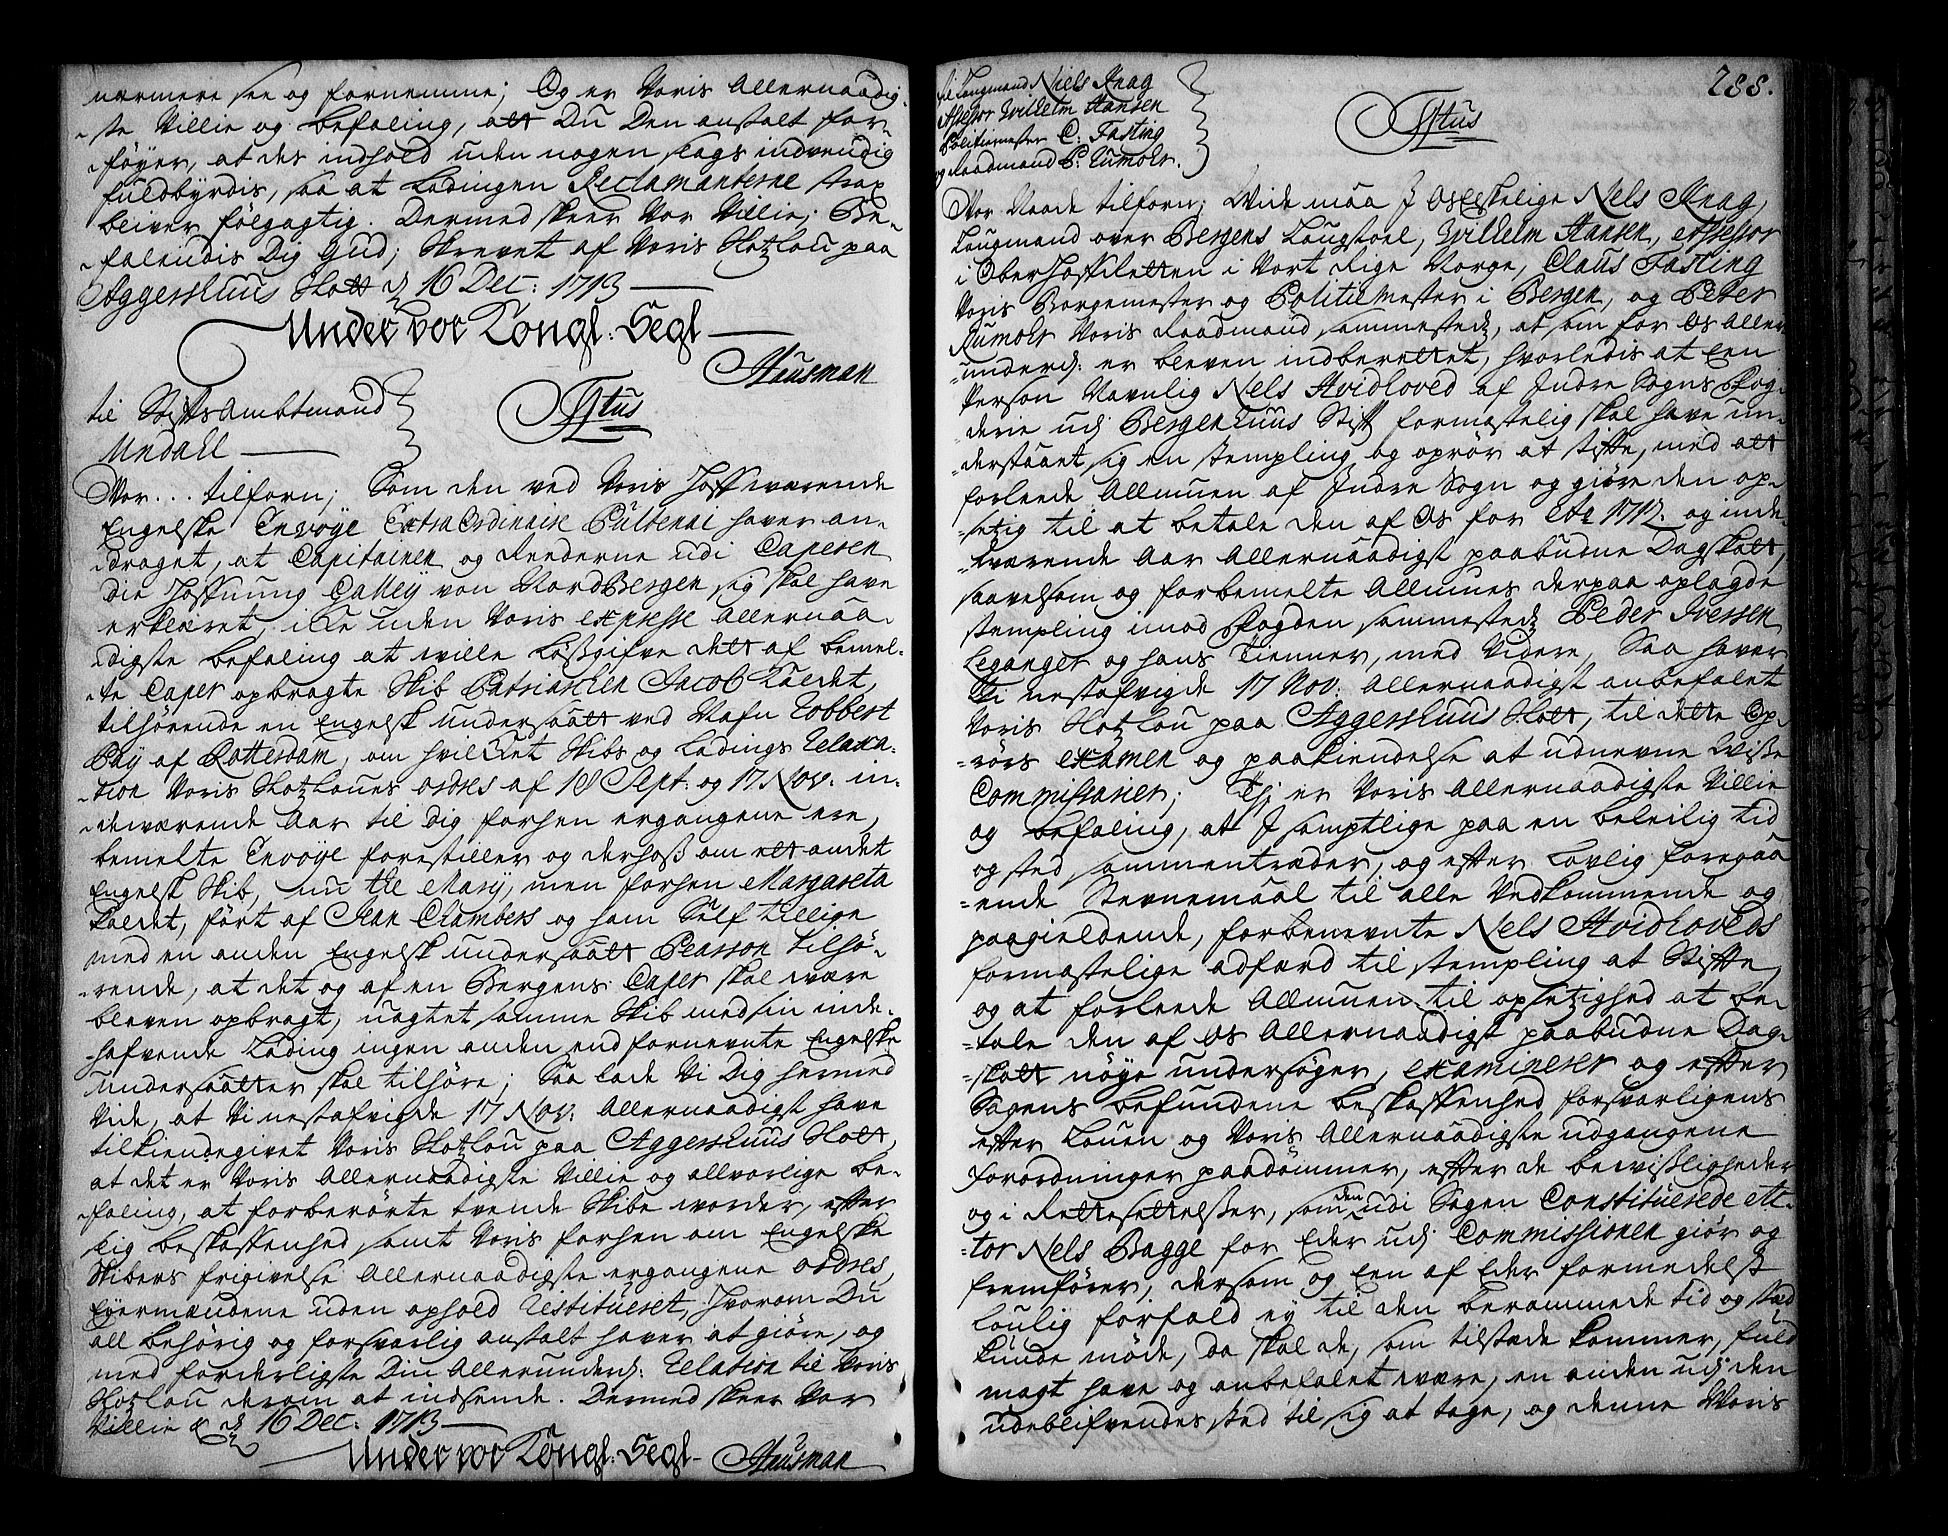 nærmere see og fornemme; Og er Voris Allernaadig-
-ste Villie og befaling, att Du Den anstalt for-
-føyer, at des indhold uden nogen slags indvendig
fuldbyrdis, saa at Ladingen Reclamanterne strax
bliver følgagtig. Dermed skeer Vor Villie; Be-
-falendis Dig Gud; Skrevet af Voris Slotzlou paa
Aggershuus Slott d 16 Dec: 1713
Under vor Kongl: Segl
Hausman
til StiftsAmbtmand
Undall
Ffftus
Vor... tilforn; Som den ved Voris Hoff værende
Engelske Envoÿe ExtraOrdinaire Pultenai haver an-
-draget, at Capitainen og Rederne udi Caperen
die Hoffnung Galleÿ von NordBergen, sig skal have
erklæret, icke uden Voris expresse Allernaa-
-digste befaling at wille løssgifve dett af bemel-
-te Caper opbragte Skib Patriarchen Jacob kaldet,
tilhørende en Engelsk undersaatt ved Nafn Robbert
Paÿ af Rotterdam, om hvilcket Skibs og Ladings relaxa-
-tion Voris Slotzloues ordres af 18 Sept: og 17 Nov: in-
-deværende Aar til dig forhen ergangene ere,
bemelte Envoÿe forestiller og derhoss om ett andet
Engelsk Skib, nu the Marÿ, men forhen Margareta
kaldet, ført af Jean Chambers og ham Self tillige
med en anden Engelsk undersaatt Pearson tilhø-
-rende, at det og af en Bergens Caper skal være
bleven opbragt, uagtet samme Skib med sin inde-
-hafvende Lading ingen anden end fornevnte Engelske
undersaatter skal tilhøre; Saa lade Vi Dig hermed
Vide, at Vi nestafvigde 17 Nov: Allernaadigst have
tilkiendegivet Voris Slotzlou paa Aggershuus Slott,
at det er Voris Allernaadigste Villie og allvorlige be-
-faling, at forberørte tvende Skibe worder, efter
sig beskaffenhed, samt Voris forhen om Engelske
Skibers frigivelse Allernaadigste ergangene ordres,
Eÿermændene uden ophold restitueret, Hvorom Du
all behørig og forsvarlig anstalt haver at giøre, og
med forderligste Din Allerunderd: relation til Voris
Slotzlou derom at indsende. Dermed skeer Vor
Villie & d 16 Dec: 1713
Under vor Kongl: Segl-
Hausman
288.
til Laugmand Niels Knag
Assessor Wilhelm Hansen
Politimester C. Fasting
og Raadmand P. Rumohr.
Ffftus
Vor Naade tilforn; Wide maa I Os Elskelige Nels Knag,
Laugmand over Bergens Laugstoel, Wilhelm Hansen, Assessor
i OberHoffRetten i Vort Rige Norge, Claus Fasting
Voris Borgemester og Politiemester i Bergen, og Peter
Rumohr Voris Raadmand sammestedz, at som for Os Aller-
-underd: er bleven indberettet, hvorledis at een
Person Navnlig Nels Hvidloved af Indre Sogns Fog-
-derie udj Bergenhuus Stift formastelig skal have un-
-derstaaet sig en stempling og oprør at stifte, med att
forleede Allmuen af Indre Sogn og giøre den op-
-setzig til at betale den af Os for Ao 1712. og inde-
-værende Aar Allernaadigst paabudne Dagskatt,
saavelsom og forbemelte Allmues derpaa oplagde
stempling imod Fogden sammestedz Peder Iversen
Leganger og hans Tienner, med Videre, Saa haver
Vi nestafvigde 17 Nov: Allernaadigst anbefalet
Voris Slotzlou paa Aggershuus Slott, til dette Op-
-rørs examen og paakiendelse at udnevne Wisse
Commissarier; Thj er Voris Allernaadigste Villie
og befaling, at I samptlige paa en beleilig tid
og sted sammentræder, og efter Lovlig foregaa-
-ende Stevnemaal til alle Vedkommende og
paagieldende, forbenevnte Nels Hvidloveds
formastelige adfærd til stempling at Stifte,
og at forleede Allmuen til opsetzighed at be-
-tale den af Os Allernaadigst paabudne Dag-
-skatt nøÿe undersøger, examinerer og efter
Sagens befundene beskaffenhed forsvarligens
efter Louen og Voris Allernaadigste udgangene
forordninger paadømmer, efter de bevissligheder
og i Rettesettelsser, som den udi Sagen Constituerede Ac-
-tor Nels Bagge for Eder udj Commissionen giør og
fremfører, dersom og Een af Eder formedelst
Loulig forfald eÿ til den berammede tid og stæd
kunde møde, da skal de, som tilstæde kommer, fuld
magt have og anbefalet være, en anden udj den
udeblifvendes sted til sig at tage, og denne Voris